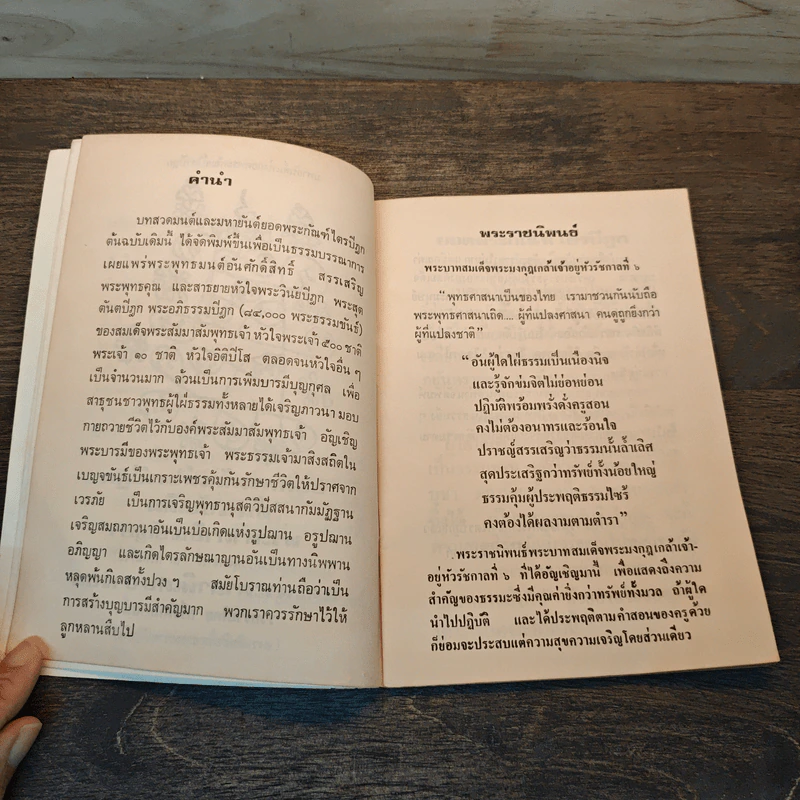 คำนำ
บทสวดมนต์และมหายันต์ยอดพระกัณฑ์ไตรปิฎก
ต้นฉบับเดิมนี้ ได้จัดพิมพ์ขึ้นเพื่อเป็นธรรมบรรณาการ
เผยแพร่พระพุทธมนต์อันศักดิ์สิทธิ์ สรรเสริญ
พระพุทธคุณ และสาธยายหัวใจพระวินัยปิฎก พระสุต
ตันตปิฎก พระอภิธรรมปิฎก (๘๔,๐๐๐ พระธรรมขันธ์)
ของสมเด็จพระสัมมาสัมพุทธเจ้า หัวใจพระเจ้า ๕๐๐ ชาติ
พระเจ้า ๑๐ ชาติ หัวใจอิติปิโส ตลอดจนหัวใจอื่น ๆ
เป็นจำนวนมาก ล้วนเป็นการเพิ่มบารมีบุญกุศล เพื่อ
สาธุชนชาวพุทธผู้ใฝ่ธรรมทั้งหลายได้เจริญภาวนา มอบ
กายถวายชีวิตไว้กับองค์พระสัมมาสัมพุทธเจ้า อัญเชิญ
พระบารมีของพระพุทธเจ้า พระธรรมเจ้ามาสิงสถิตใน
เบญจขันธ์เป็นเกราะเพชรคุ้มกันรักษาชีวิตให้ปราศจาก
เวรภัย เป็นการเจริญพุทธานุสติวิปัสสนากัมมัฏฐาน
เจริญสมถภาวนาอันเป็นบ่อเกิดแห่งรูปฌาน อรูปฌาน
อภิญญา และเกิดไตรลักษณาญาณอันเป็นทางนิพพาน
หลุดพ้นกิเลสทั้งปวง ๆ สมัยโบราณท่านถือว่าเป็น
การสร้างบุญบารมีสำคัญมาก พวกเราควรรักษาไว้ให้
ลูกหลานสืบไป
พระราชนิพนธ์
พระบาทสมเด็จพระมงกุฎเกล้าเจ้าอยู่หัวรัชกาลที่ ๖
“พุทธศาสนาเป็นของไทย เรามาชวนกันนับถือ
พระพุทธศาสนาเถิด.... ผู้ที่แปลงศาสนา คนดูถูกยิ่งกว่า
ผู้ที่แปลงชาติ”
“อันผู้ใดใฝ่ธรรมเป็นเนืองนิจ
และรู้จักข่มจิตไม่ย่อหย่อน
ปฏิบัติพร้อมพรั่งดั่งครูสอน
คงไม่ต้องอนาทรและร้อนใจ
ปราชญ์สรรเสริญว่าธรรมนั้นล้ำเลิศ
สุดประเสริฐกว่าทรัพย์ทั้งน้อยใหญ่
ธรรมคุ้มผู้ประพฤติธรรมไซร้
คงต้องได้ผลงามตามตำรา”
พระราชนิพนธ์พระบาทสมเด็จพระมงกุฎเกล้าเจ้า-
อยู่หัวรัชกาลที่ ๖ ที่ได้อัญเชิญมานี้ เพื่อแสดงถึงความ
สำคัญของธรรมะซึ่งมีคุณค่ายิ่งกว่าทรัพย์ทั้งมวล ถ้าผู้ใด
นำไปปฏิบัติ และได้ประพฤติตามคำสอนของครูด้วย
ก็ย่อมจะประสบแต่ความสุขความเจริญโดยส่วนเดียว